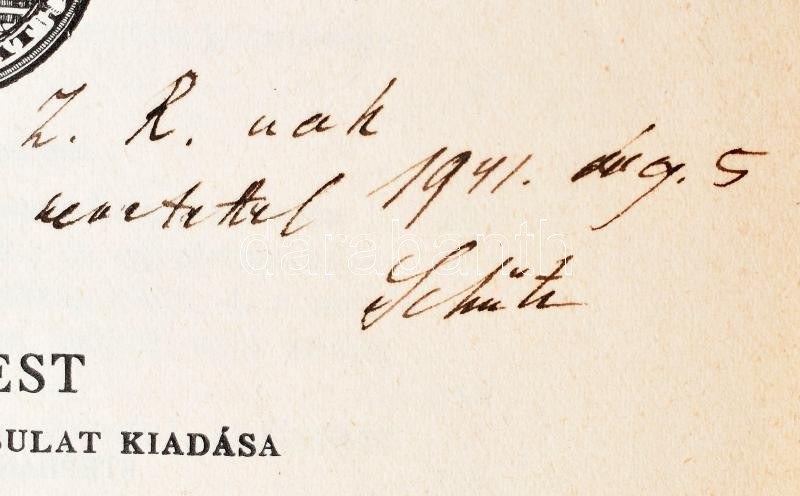 Z. R. nak
szeretettel 1941. aug. 5
Schütz
EST
SULAT KIADÁSA
darabanth